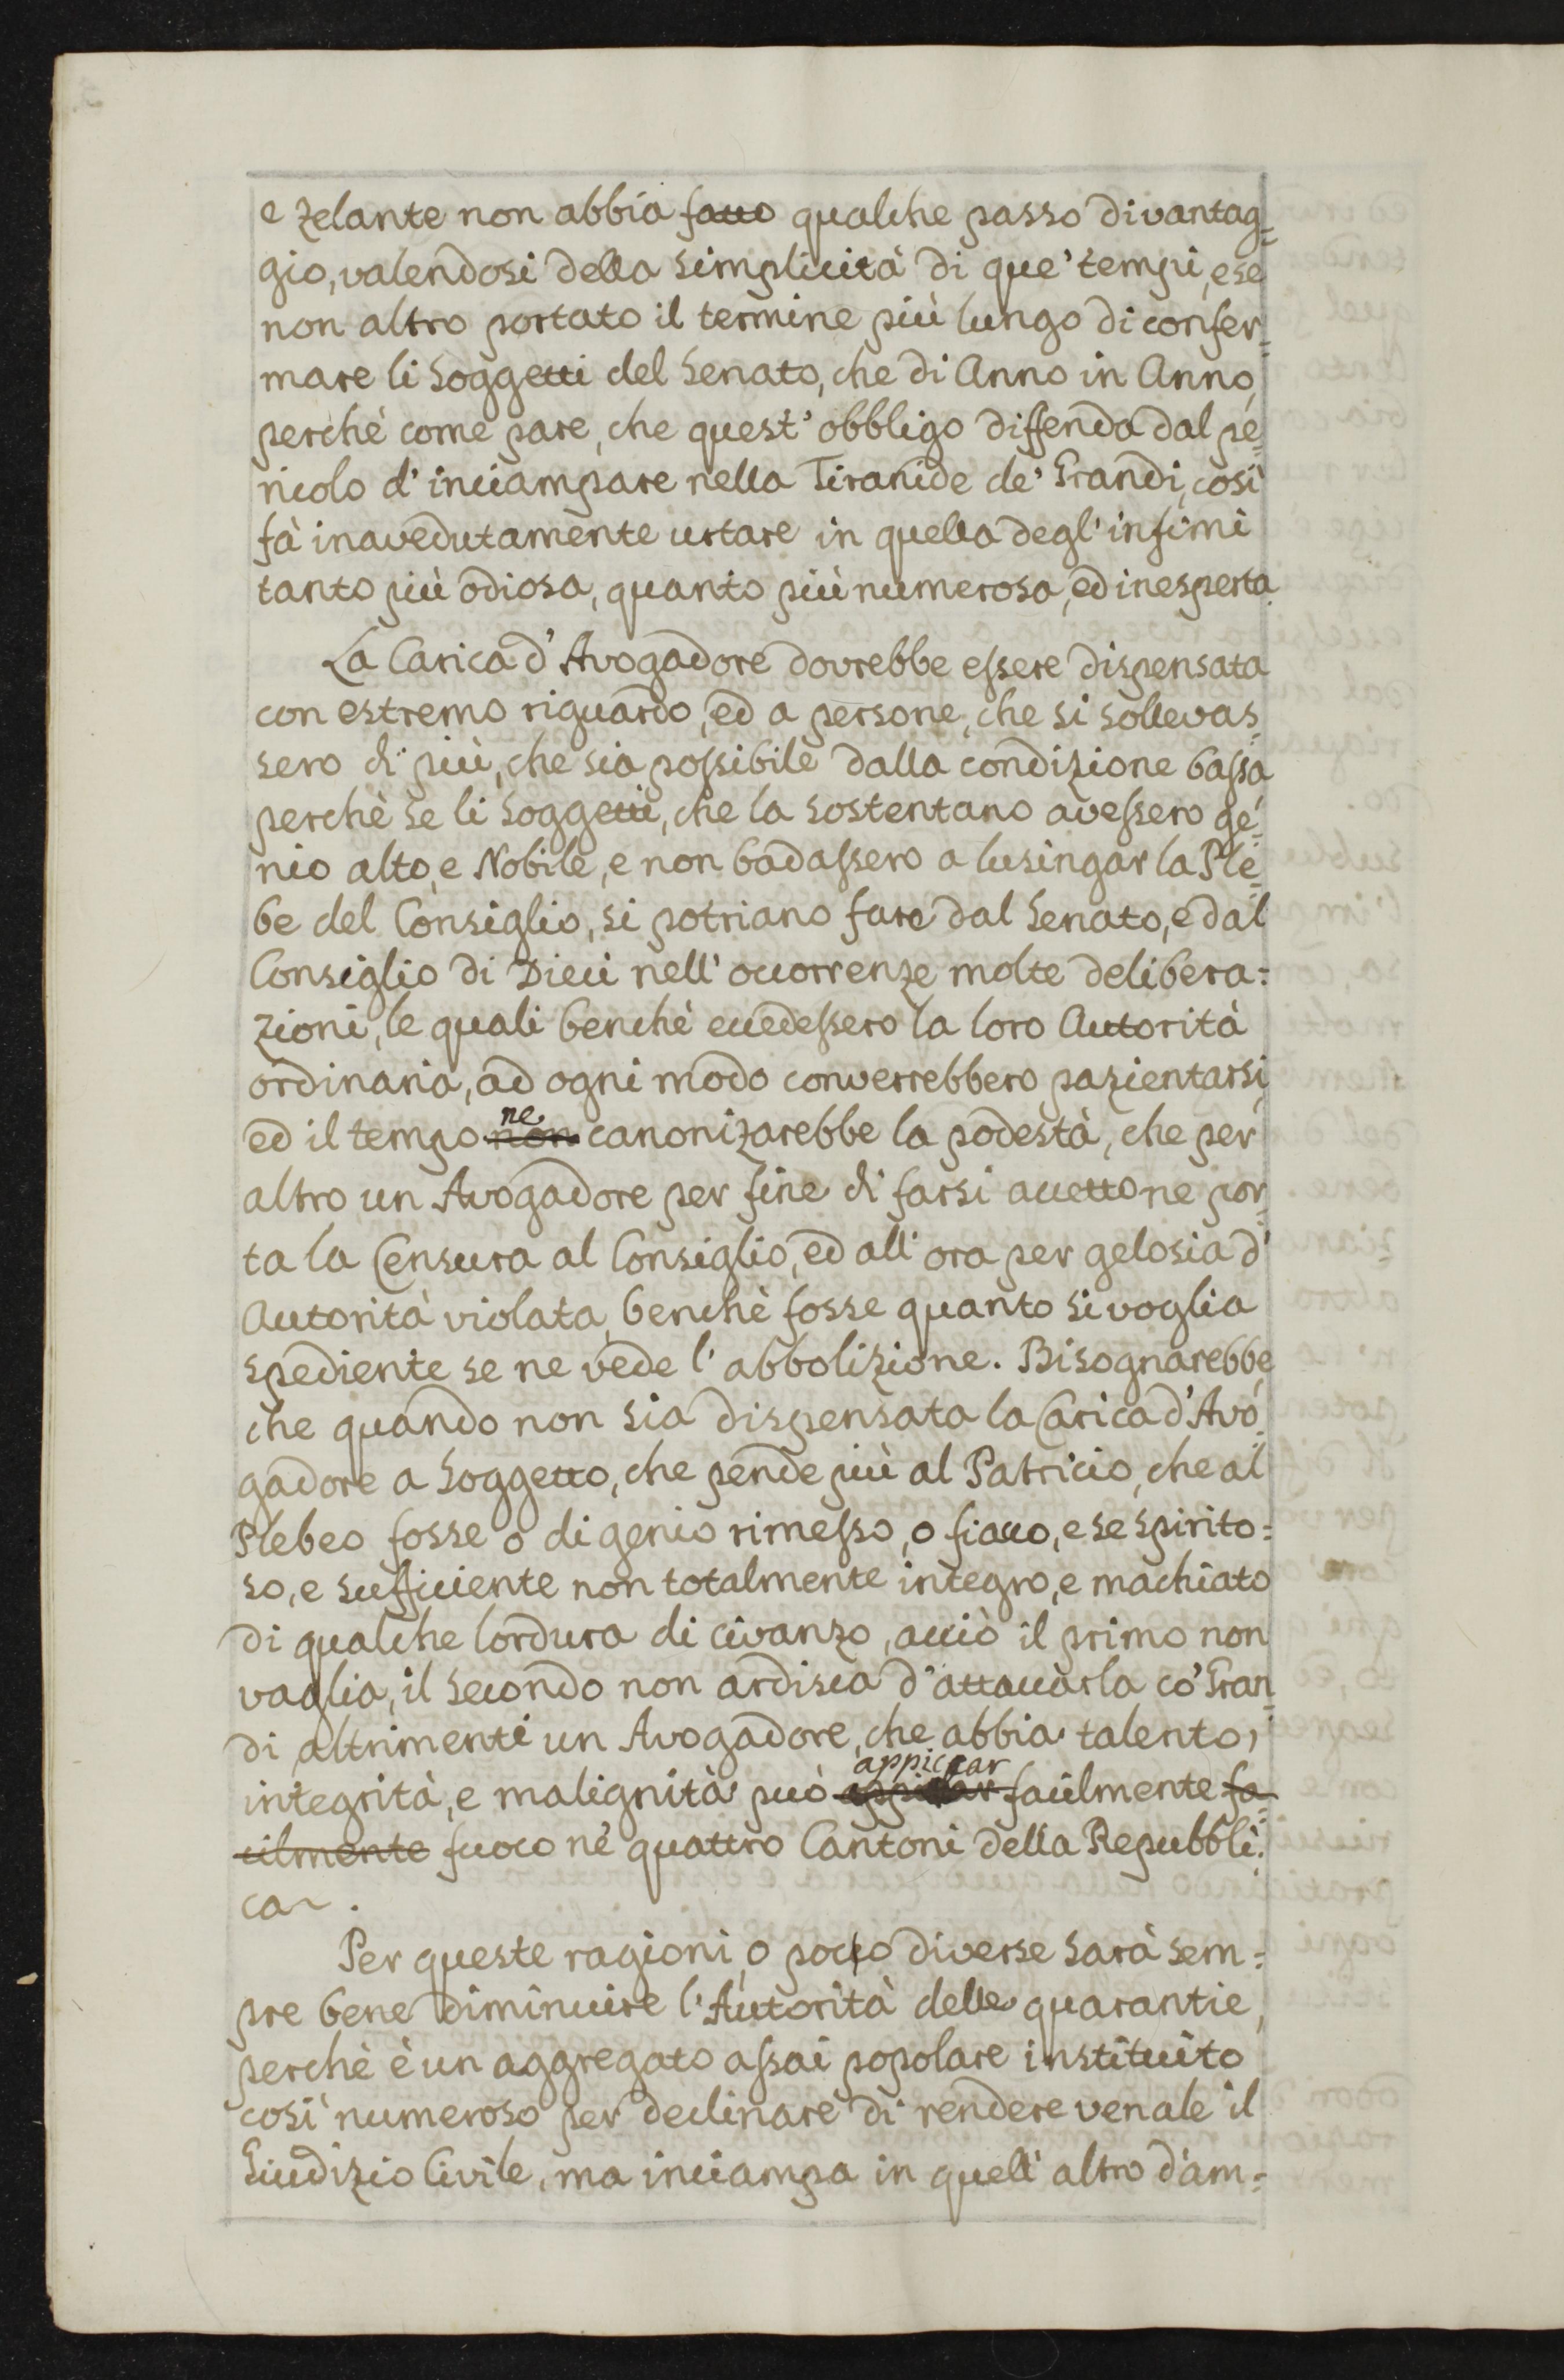 e zelante non abbia fatto qualche passo di vantag=
gio, valendosi della simplicità di que' tempi, e se
non altro portato il termine più lungo di confer=
mare li Soggetti del Senato, che di Anno in Anno,
perchè come pare, che quest' obbligo diffenda dal pe=
ricolo d' inciampare nella Tiranide de' Grandi, così
fà inavedutamente urtare in quella degl' infimi
tanto più odiosa, quanto più numerosa, ed inesperta
La Carica d' Avogadore dovrebbe essere dispensata
con estremo riguardo, ed a persone, che si sollevas=
sero di più, che sia possibile dalla condizione bassa
perchè se li Soggetti, che la sostentano avessero ge=
nio alto, e Nobile, e non badassero a lusingar la Ple=
be del Consiglio, si potriano fare dal Senato, e dal
Consiglio di Dieci nell' occorrenze molte delibera=
zioni, le quali benchè eccedessero la loro Autorità
ordinaria, ad ogni modo converrebbero pazientarsi,
ed il tempo non ne canonizarebbe la podestà, che per
altro un Avogadore per fine di farsi accetto ne por=
ta la Censura al Consiglio, ed all' ora per gelosia d'
Autorità violata, benchè fosse quanto si voglia
spediente se ne vede l' abbolizione. Bisognarebbe,
che quando non sia dispensata la Carica d' Avo=
gadore a Soggetto, che pende più al Patricio, che al
Plebeo fosse o di genio rimesso, o fiacco, e se spirito=
so, e sufficiente non totalmente integro, e machiato
di qualche lordura di civanzo, acciò il primo non
vaglia, il secondo non ardisca d' attaccarla co' Gran=
di altrimenti un Avogadore, che abbia talento,
integrità, e malignità può appiccar facilmente fa=
cilmente fuoco nè quattro Cantoni della Repubbli=
ca.
Per queste ragioni, o poco diverse sarà sem=
pre bene diminuire l' Autorità delle quarantie,
perchè è un aggregato assai popolare instituito
così numeroso per declinare di rendere venale il
Giudizio Civile, ma inciampa in quell' altro d' am=